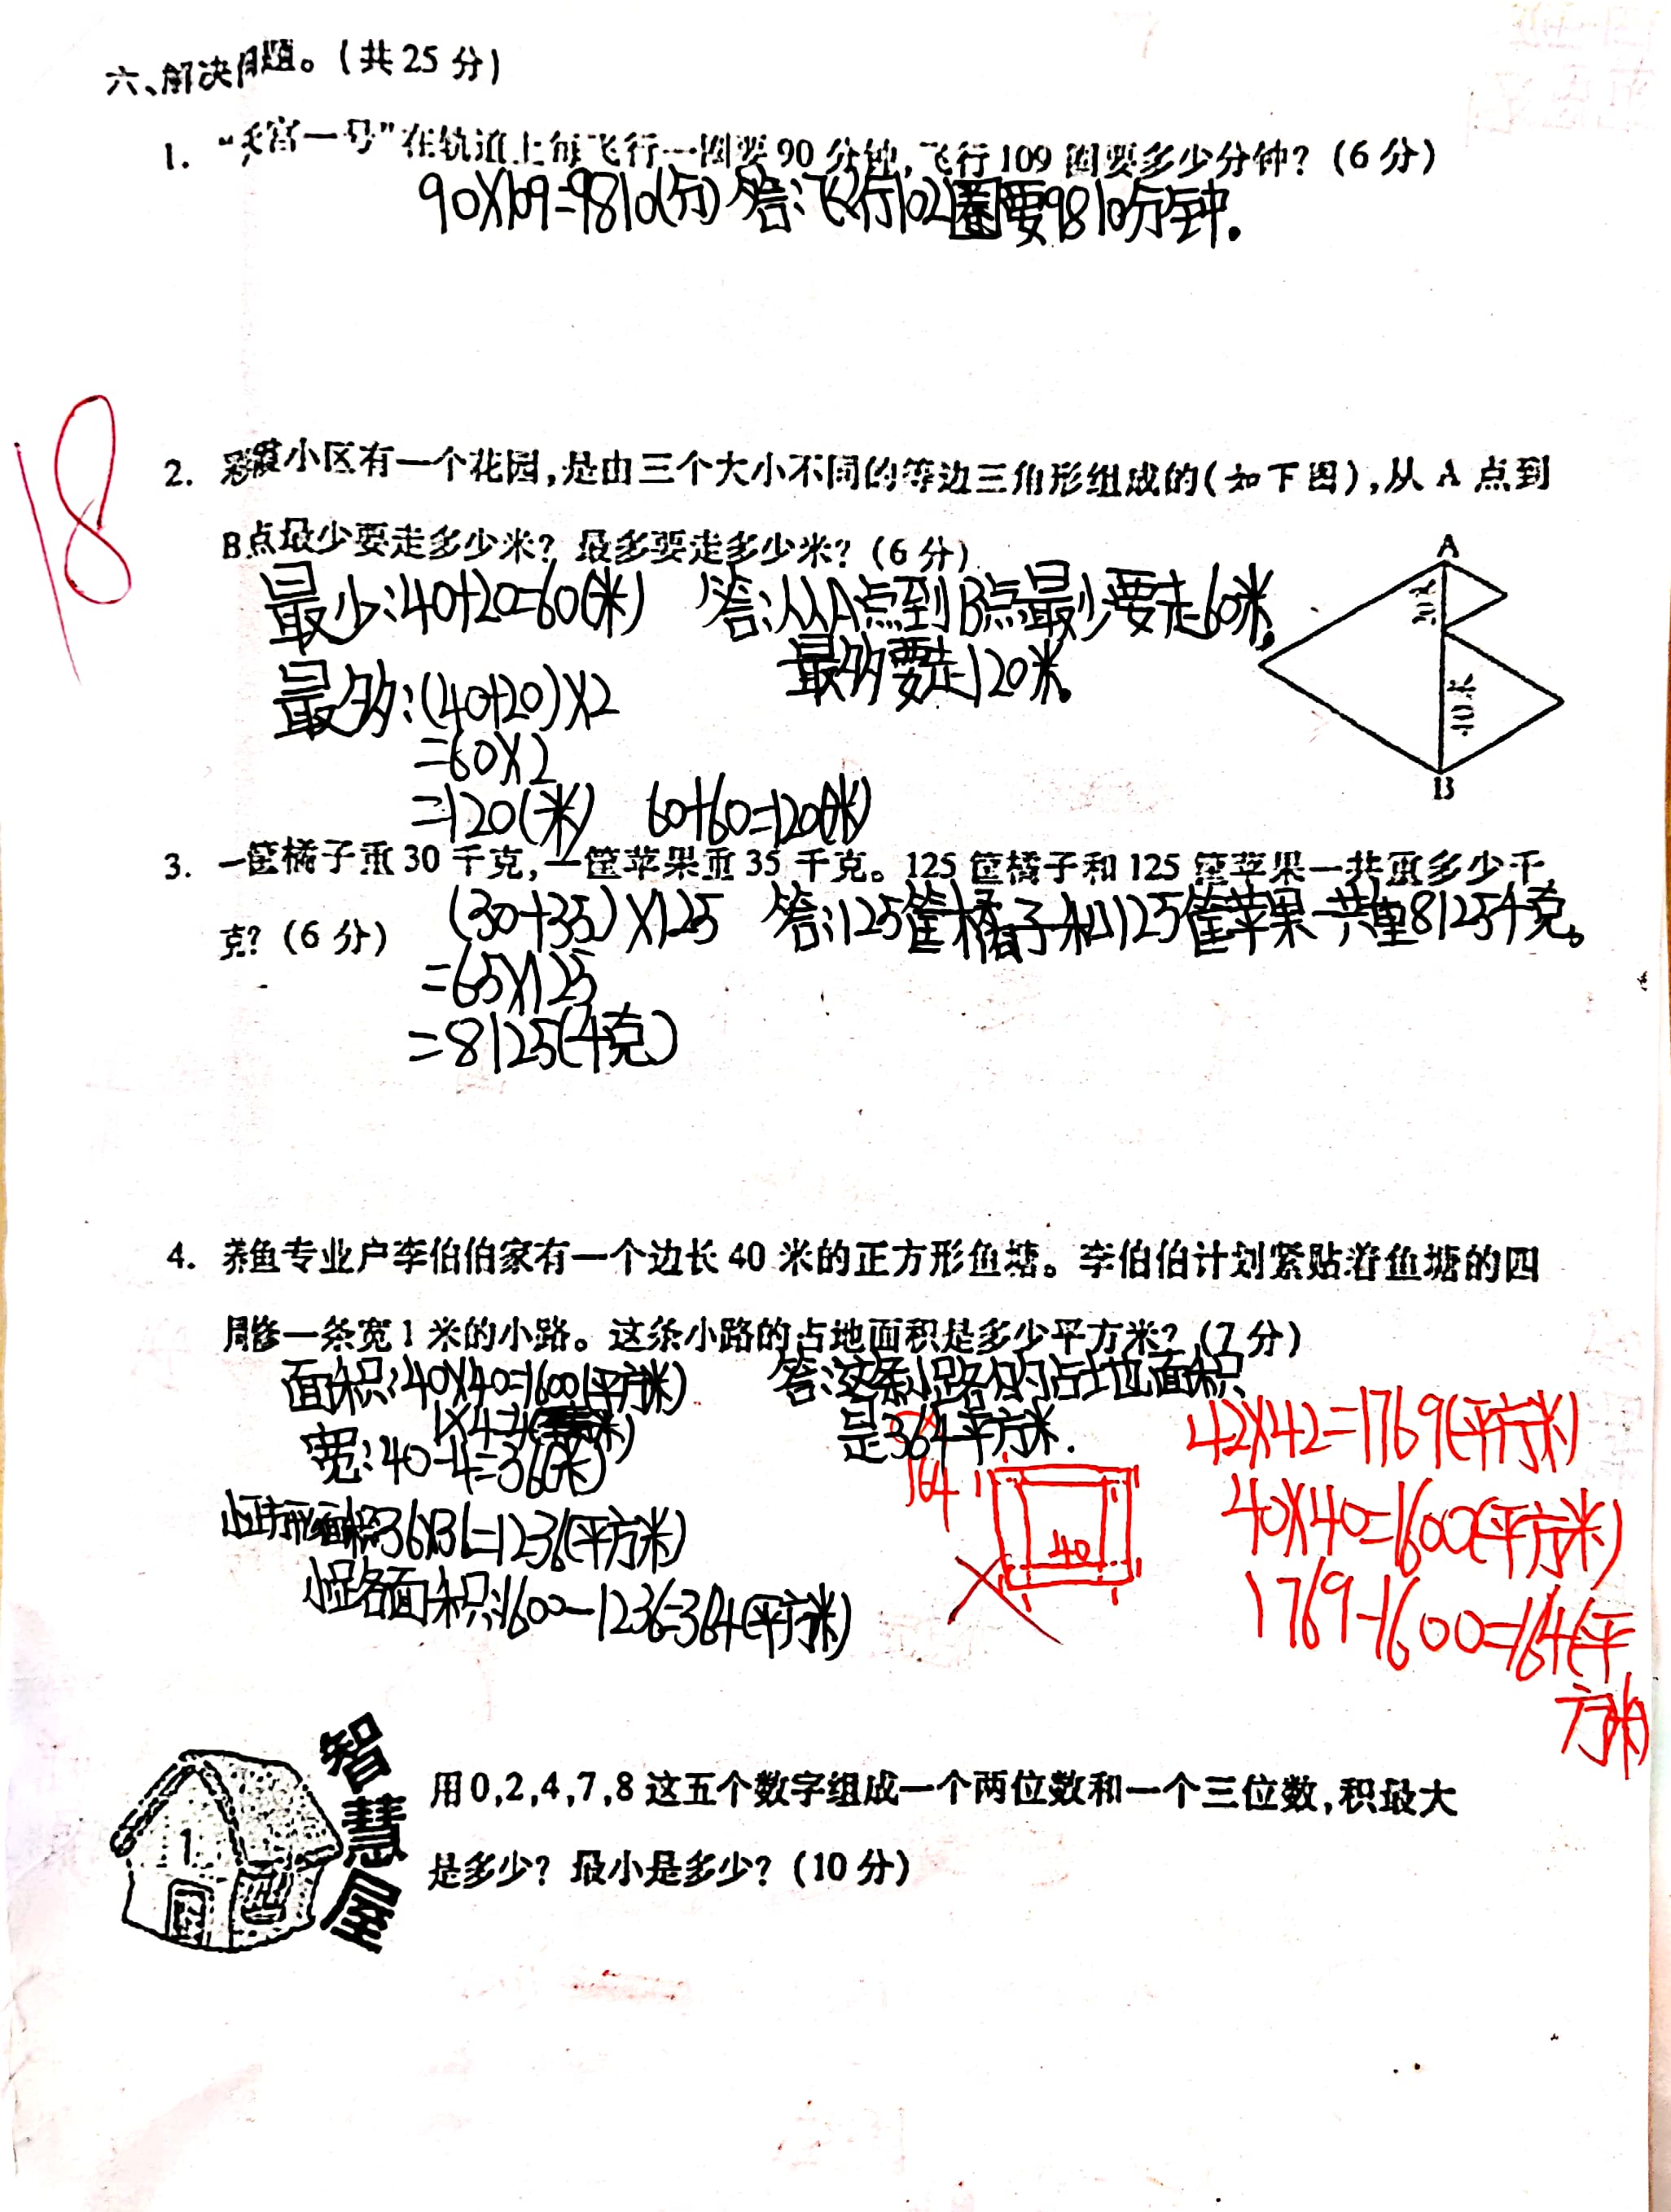 六、解决问题。(共25分)
1. “天宫一号”在轨道上每飞行一圈要90分钟,飞行109圈要多少分钟?(6分)
90×109=9810(分) 答:飞行102圈要9810分钟.
18
2. 彩霞小区有一个花园,是由三个大小不同的等边三角形组成的(如下图),从A点到
B点最少要走多少米?最多要走多少米?(6分)
A
最少:40+20=60(米) 答:从A点到B点最少要走60米,
最多:(40+20)×2 最多要走120米.
=60×2
=120(米) 60+60=120(米)
B
3. 一筐橘子重30千克,一筐苹果重35千克。125筐橘子和125筐苹果一共重多少千
克?(6分) (30+35)×125 答:125筐橘子和125筐苹果一共重8125千克。
=65×125
=8125(千克)
4. 养鱼专业户李伯伯家有一个边长40米的正方形鱼塘。李伯伯计划紧贴着鱼塘的四
周修一条宽1米的小路。这条小路的占地面积是多少平方米?(7分)
面积:40×40=1600(平方米) 答:这条小路的占地面积
1×4=4(米) 是364平方米.
宽:40-4=36(米)
164
1
40
42×42=1769(平方米)
40×40=1600(平方米)
1769-1600=164(平
方米)
小正方形面积:36×36=1236(平方米)
小路面积:1600-1236=364(平方米)
智慧屋
用0,2,4,7,8这五个数字组成一个两位数和一个三位数,积最大
是多少?最小是多少?(10分)